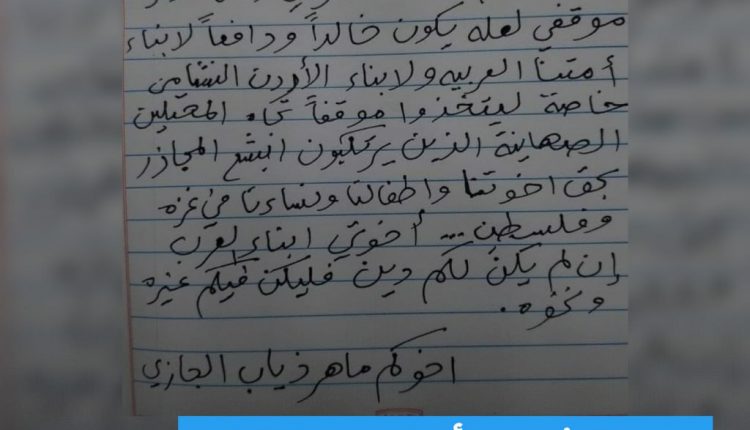 موقفي لعله يكون خالداً ودافعاً لابناء
أمتنا العربيه ولابناء الأردن النشامى
خاصة ليتخذوا موقفاً تجاه المحتلين
الصهاينة الذين يرتكبون ابشع المجازر
بحق اخوتنا واطفالنا ونساءنا في غزه
وفلسطين... أخوتي ابناء العرب
إن لم يكن لكم دين فليكن فيكم غيره
ونخوه.
اخوكم ماهر ذياب الجازي